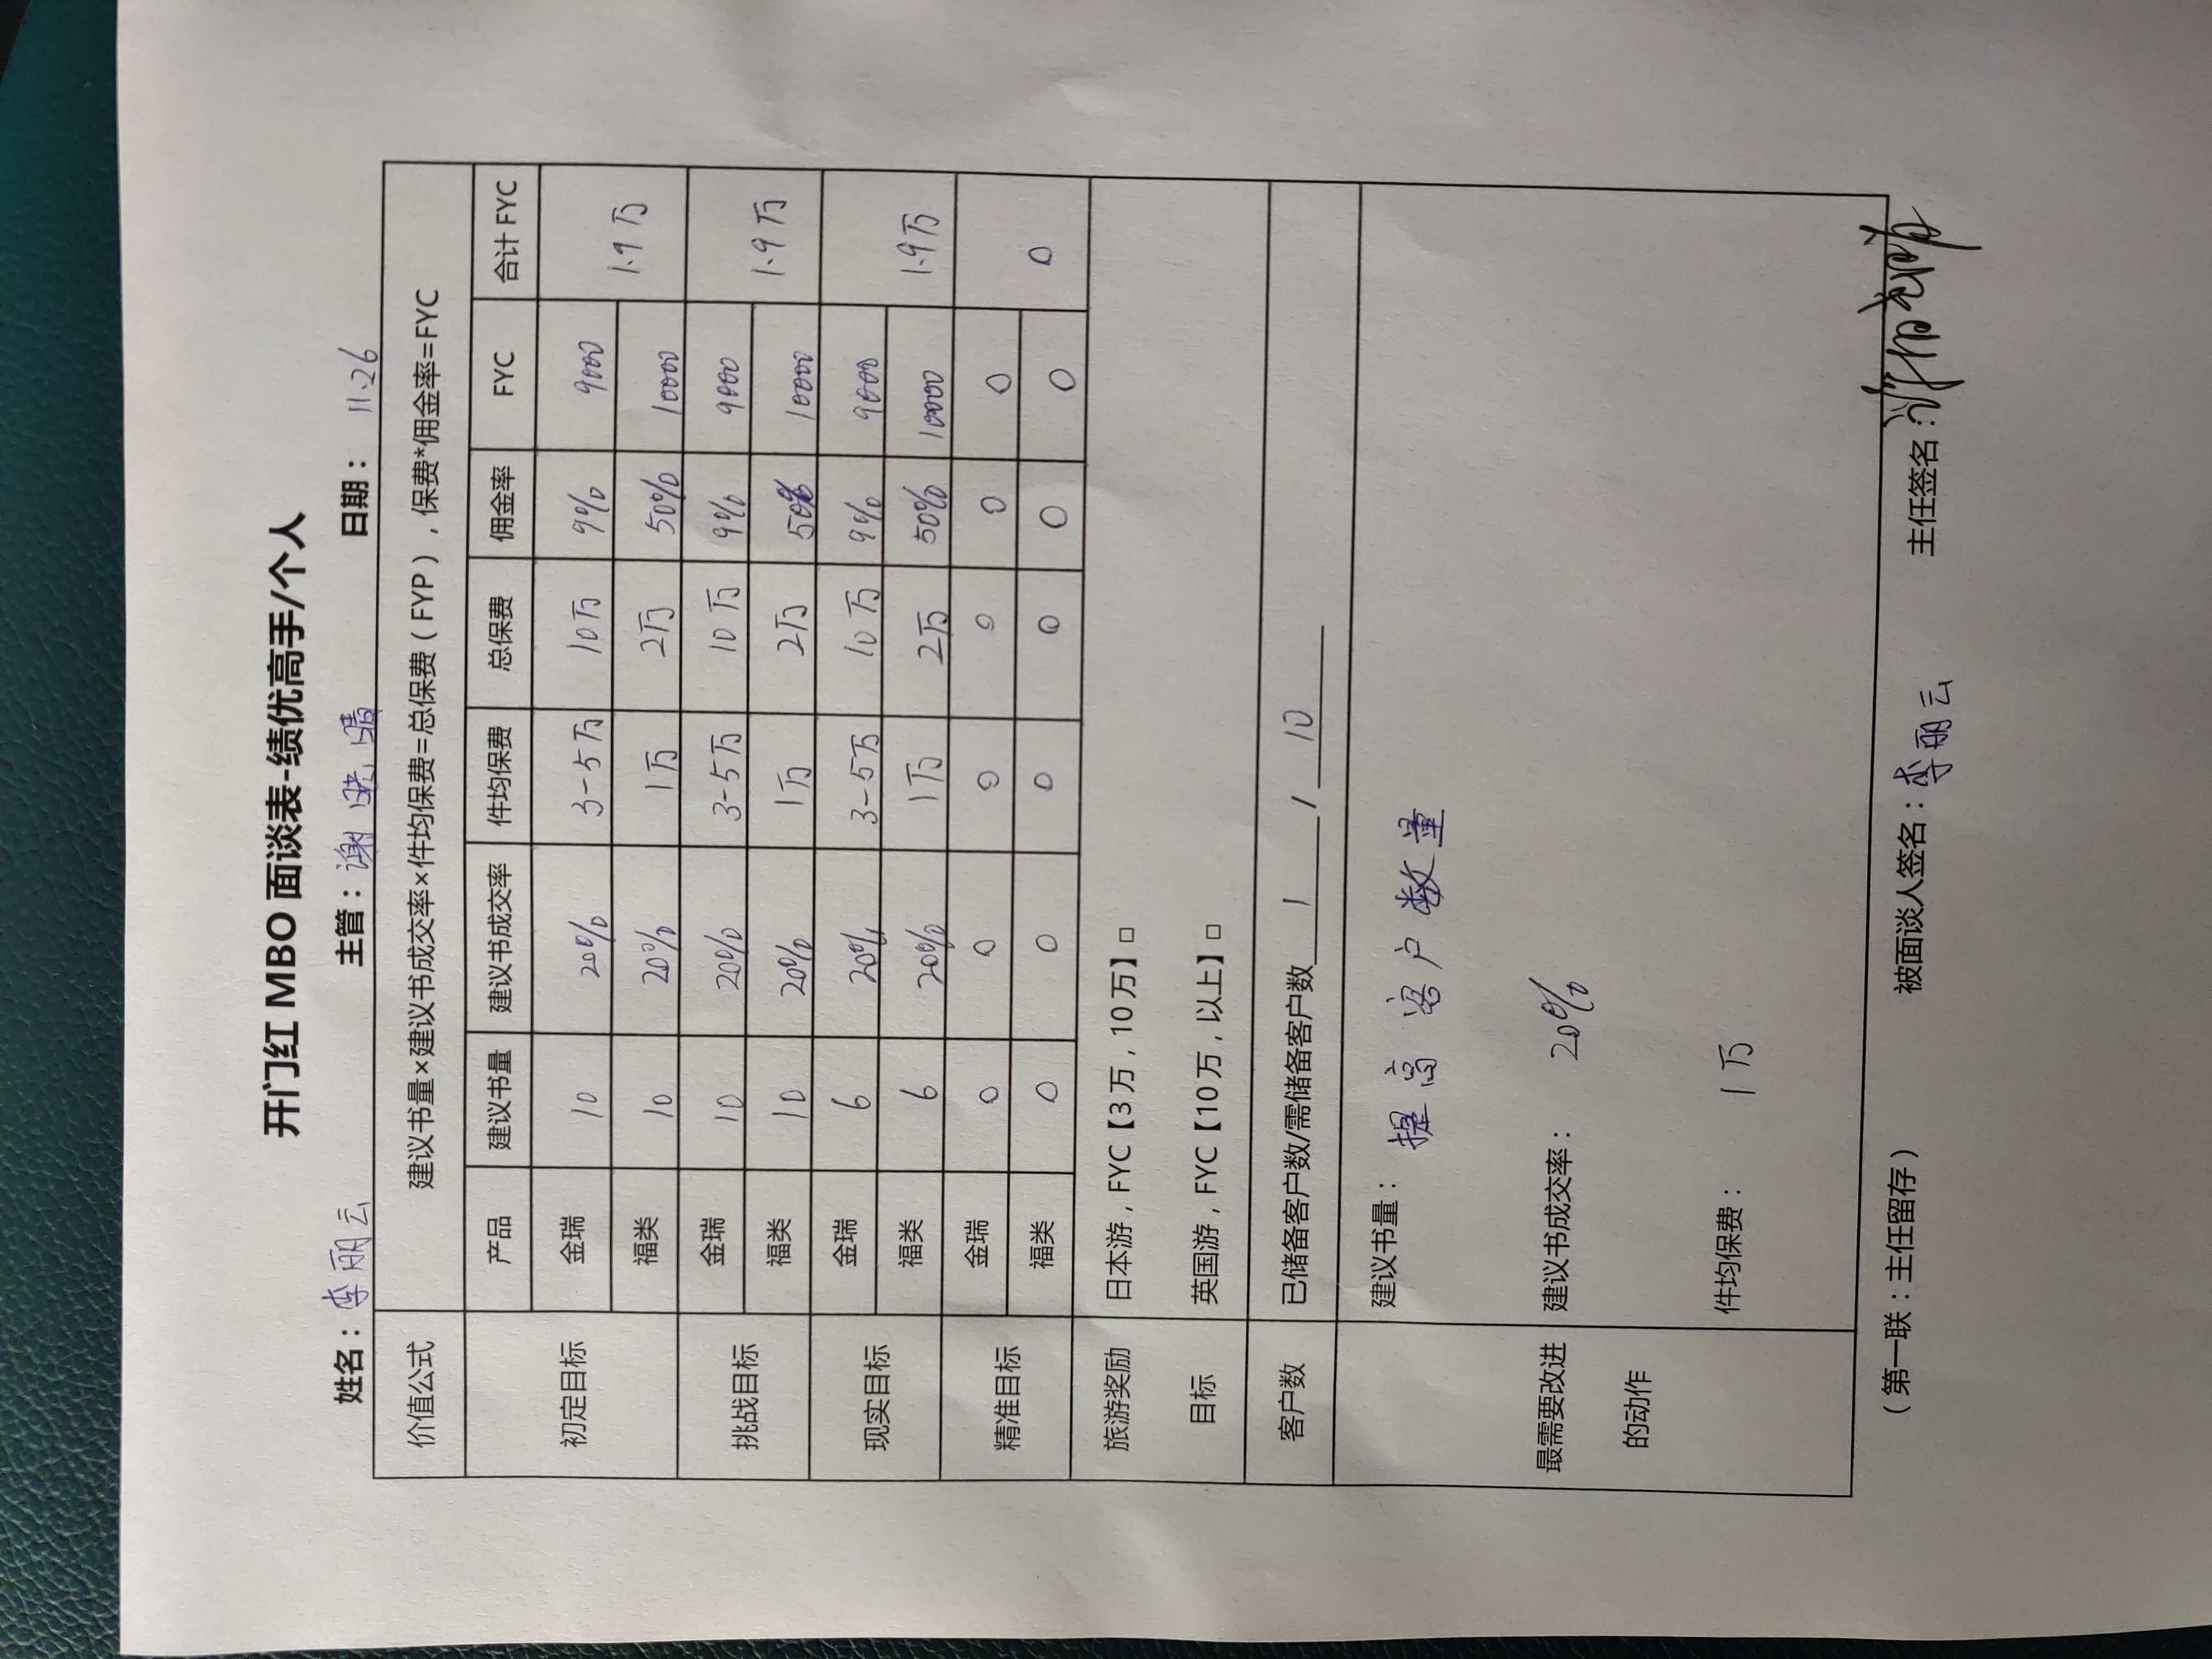 开门红 MBO 面谈表-绩优高手/个人
姓名：李丽云 主管：谢晓晴 日期：11.26
价值公式 建议书量×建议书成交率×件均保费=总保费（FYP），保费*佣金率=FYC
产品 建议书量 建议书成交率 件均保费 总保费 佣金率 FYC 合计 FYC
初定目标 金瑞 10 20% 3-5万 10万 9% 9000 1.9万
福类 10 20% 1万 2万 50% 10000
挑战目标 金瑞 10 20% 3-5万 10万 9% 9000 1.9万
福类 10 20% 1万 2万 50% 10000
现实目标 金瑞 6 20% 3-5万 10万 9% 9000 1.9万
福类 6 20% 1万 2万 50% 10000
精准目标 金瑞 0 0 0 0 0 0 0
福类 0 0 0 0 0 0
旅游奖励 日本游，FYC【3万，10万】□
目标 英国游，FYC【10万，以上】□
客户数 已储备客户数/需储备客户数 1 / 10
建议书量： 提高客户数量
最需要改进 建议书成交率： 20%
的动作
件均保费： 1万
（第一联：主任留存） 被面谈人签名：李丽云 主任签名：